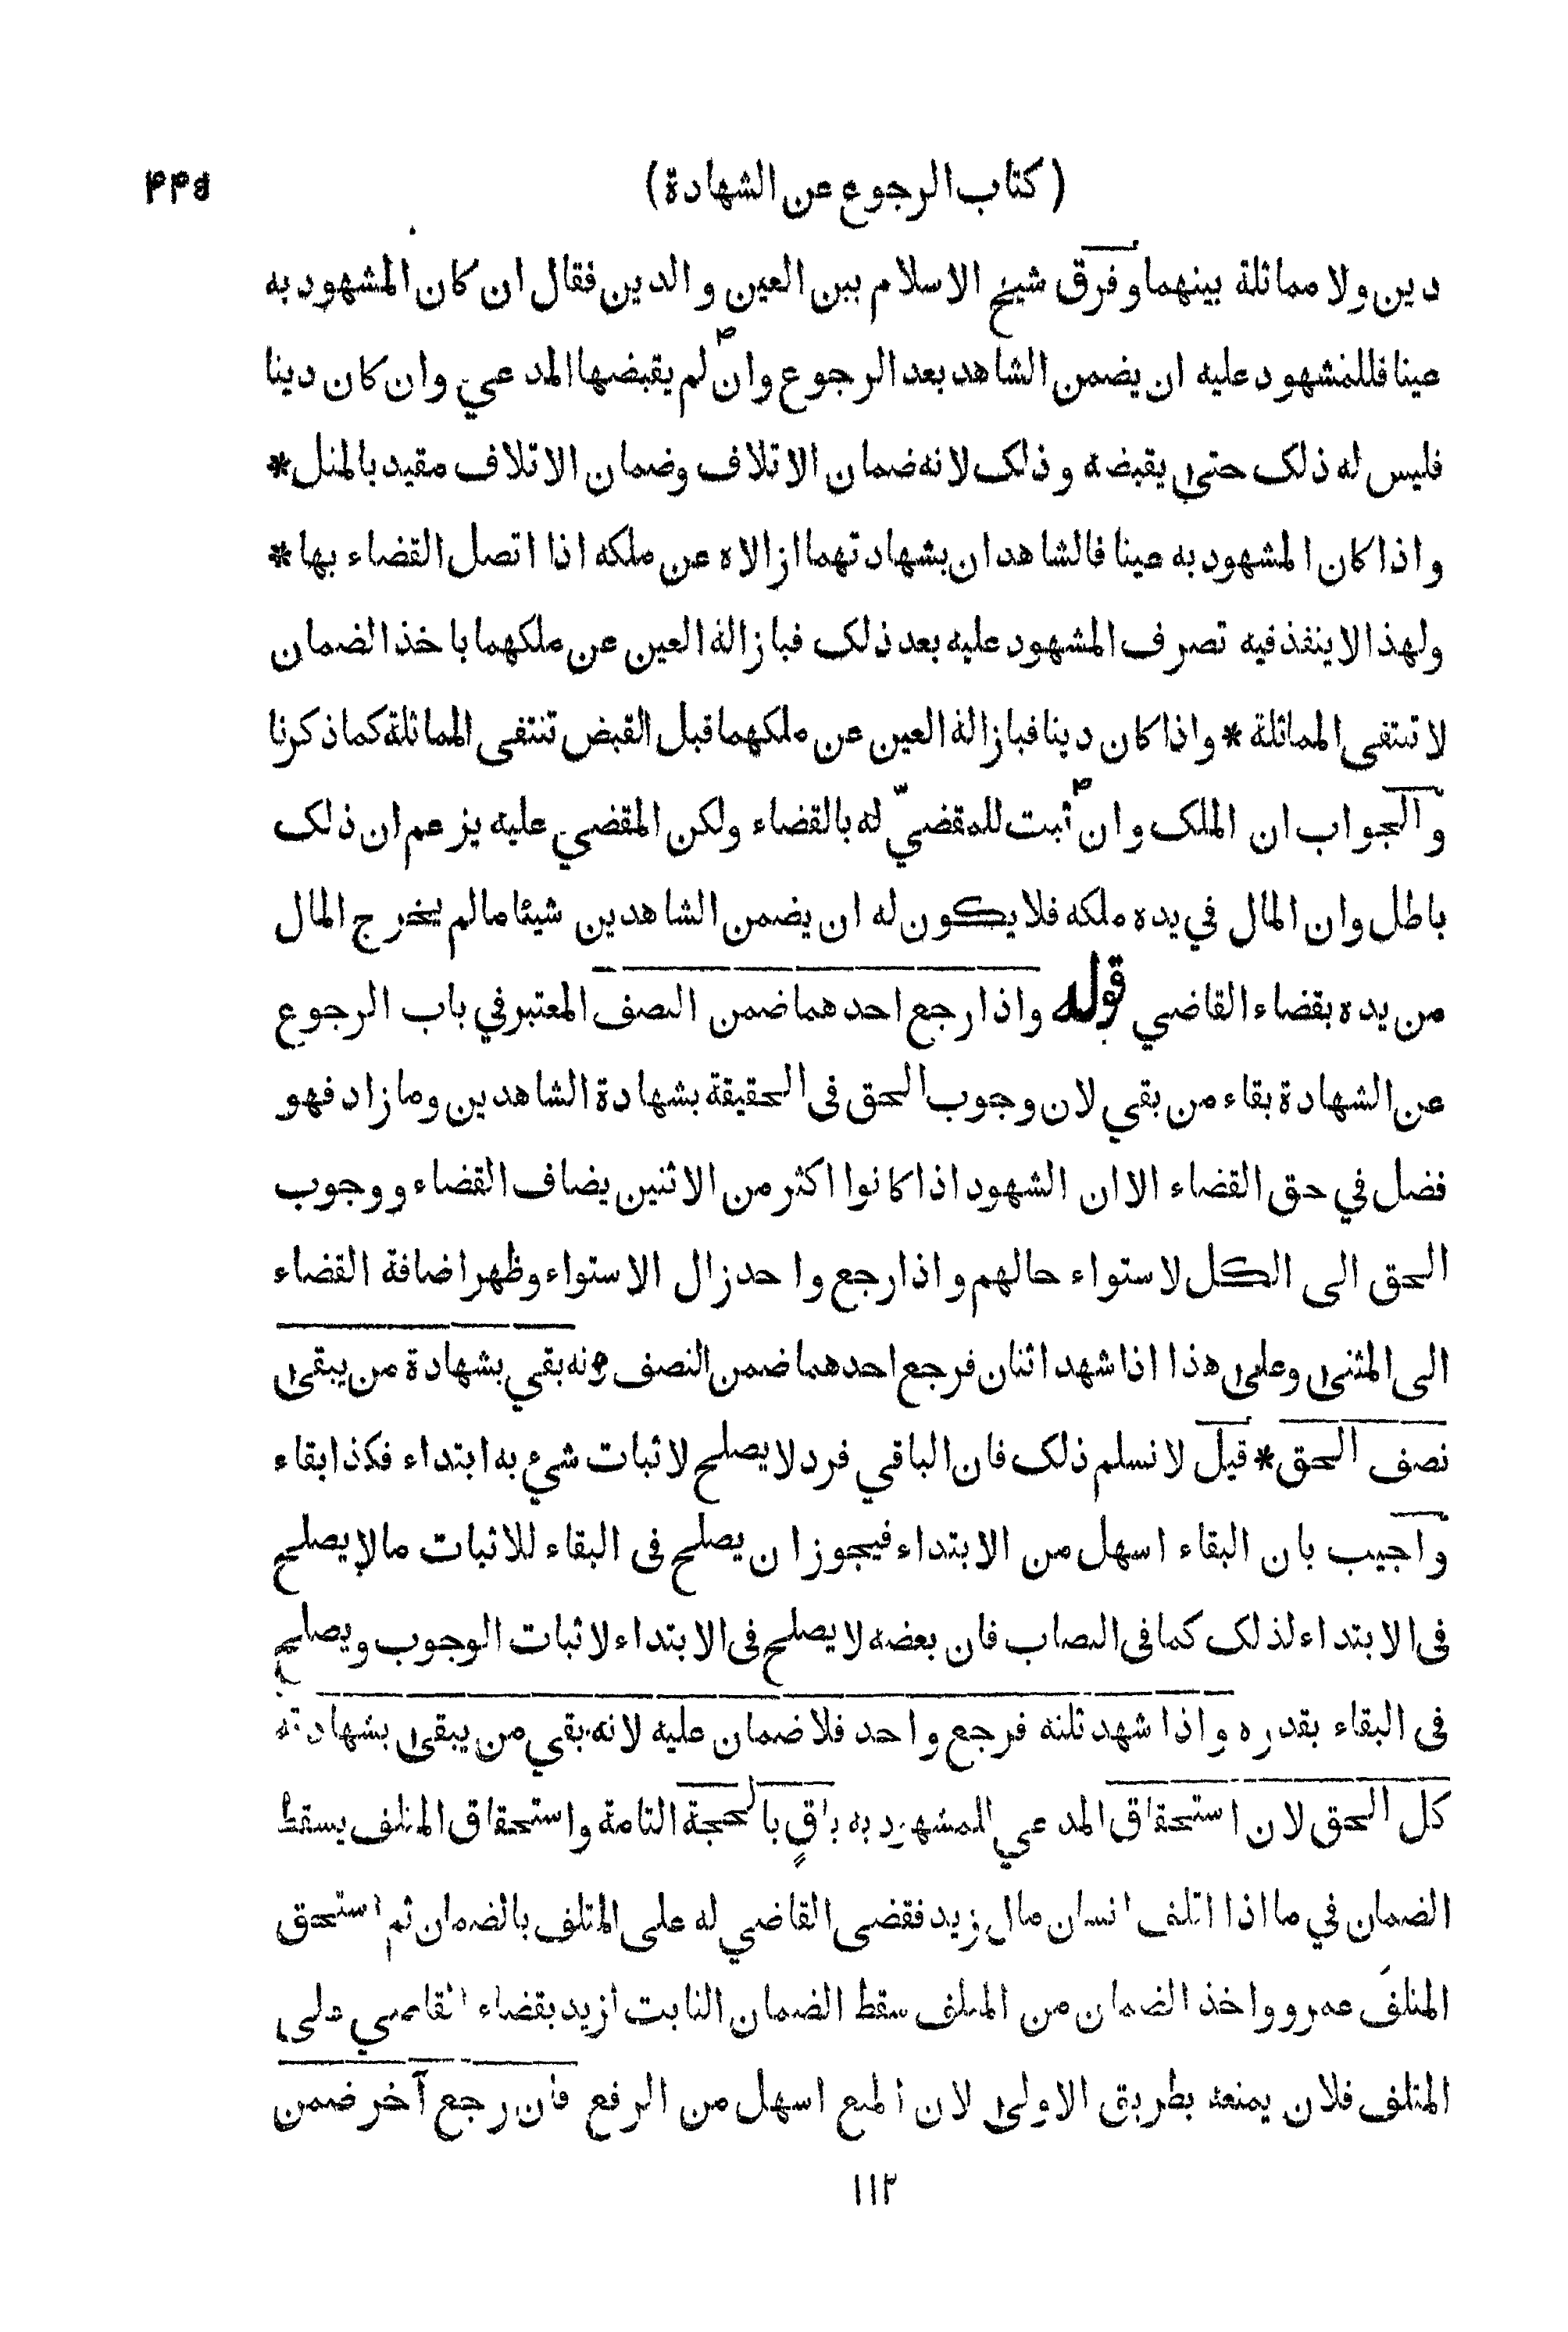 ( كتاب الرجوع عن الشهادة ) ۴۴۵
دين ولا مماثلة بينهما وفرق شيخ الاسلام بين العين والدين فقال ان كان المشهود به
عينا فللمشهود عليه ان يضمن الشاهد بعد الرجوع وان لم يقبضها المدعي وان كان دينا
فليس له ذلك حتى يقبضه وذلك لانه ضمان الاتلاف وضمان الاتلاف مقيد بالمثل *
واذا كان المشهود به عينا فالشاهدان بشهادتهما ازالاه عن ملكه اذا اتصل القضاء بها *
ولهذا لا ينفذ فيه تصرف المشهود عليه بعد ذلك فبازالة العين عن ملكهما باخذ الضمان
لا تنتفى المماثلة * واذا كان دينا فبازالة العين عن ملكهما قبل القبض تنتفى المماثلة كما ذكرنا
والجواب ان الملك وان ثبت للمقضيّ له بالقضاء ولكن المقضي عليه يزعم ان ذلك
باطل وان المال في يده ملكه فلا يكون له ان يضمن الشاهدين شيئا مالم يخرج المال
من يده بقضاء القاضي قوله واذا رجع احدهما ضمن النصف المعتبر في باب الرجوع
عن الشهادة بقاء من بقي لان وجوب الحق فى الحقيقة بشهادة الشاهدين وما زاد فهو
فضل في حق القضاء الا ان الشهود اذا كانوا اكثر من الاثنين يضاف القضاء ووجوب
الحق الى الكل لاستواء حالهم واذا رجع واحد زال الاستواء وظهر اضافة القضاء
الى المثنى وعلى هذا اذا شهد اثنان فرجع احدهما ضمن النصف لانه بقي بشهادة من يبقى
نصف الحق * قيل لا نسلم ذلك فان الباقي فرد لا يصلح لاثبات شيء به ابتداء فكذا بقاء
واجيب بان البقاء اسهل من الابتداء فيجوز ان يصلح فى البقاء للاثبات مالا يصلح
فى الابتداء لذلك كما فى النصاب فان بعضه لا يصلح فى الابتداء لاثبات الوجوب ويصلح
فى البقاء بقدره واذا شهد ثلثه فرجع واحد فلا ضمان عليه لانه بقي من يبقى بشهادته
كل الحق لان استحقاق المدعي للمشهود به باقٍ بالحجة التامة واستحقاق المتلف يسقط
الضمان في ما اذا اتلف انسان مال زيد فقضى القاضي له على المتلف بالضمان ثم استحق
المتلفَ عمرو واخذ الضمان من المتلف سقط الضمان الثابت لزيد بقضاء القاضي على
المتلف فلان يمنعه بطريق الاولى لان المنع اسهل من الرفع فان رجع آخر ضمن
۱۱۲